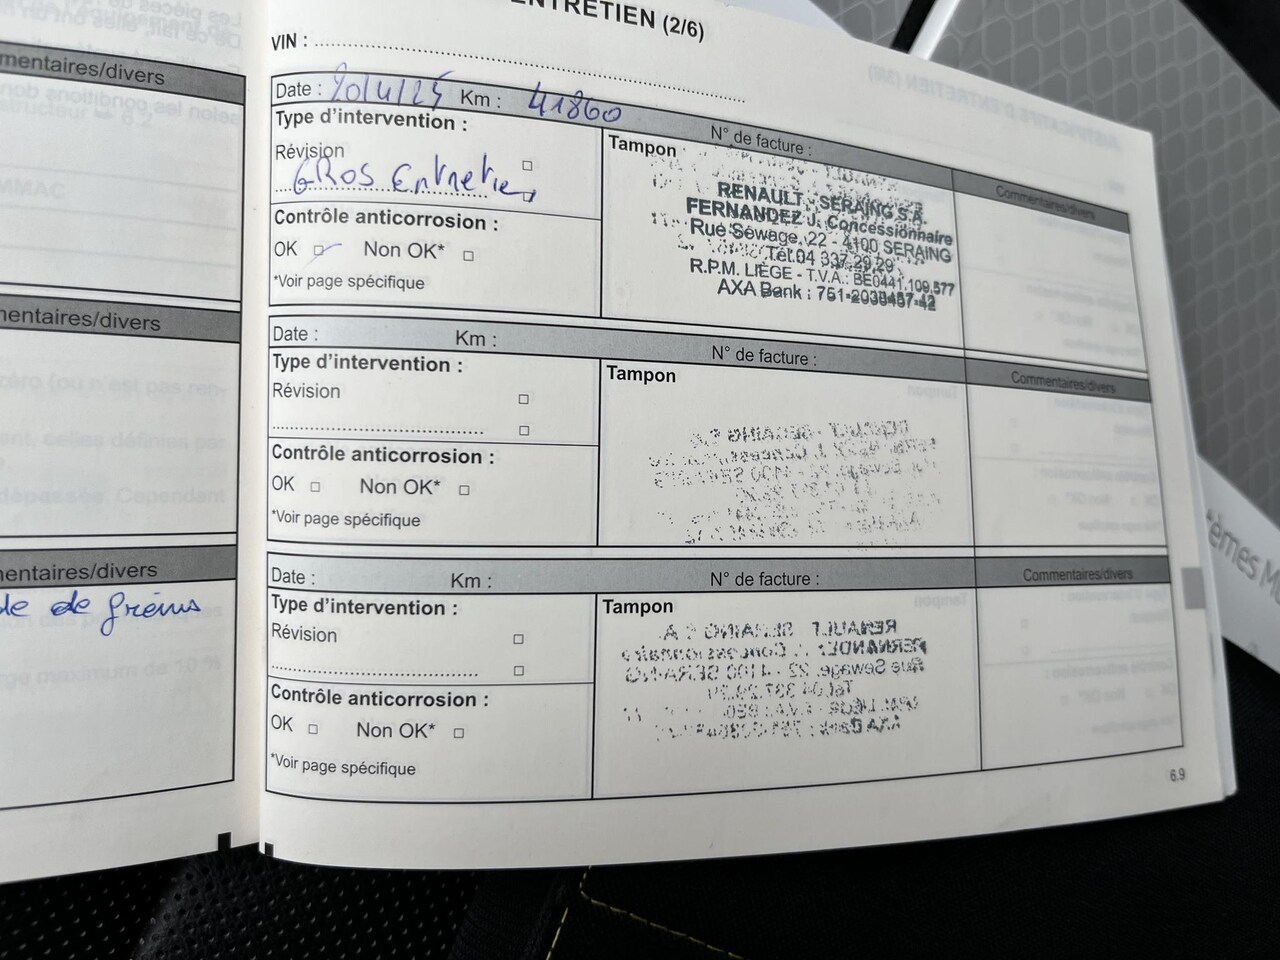 mentaires/divers
mentaires/divers
mentaires/divers
de de freins
ENTRETIEN (2/6)
VIN :
Date : 20/4/25 Km : 41860 N° de facture :
Commentaires/divers
Type d'intervention :
Révision
GROS Entretien
Contrôle anticorrosion :
OK Non OK*
*Voir page spécifique
Tampon
RENAULT - SERAING S.A.
FERNANDEZ J. Concessionnaire
Rue Sewage, 22 - 4100 SERAING
Tél.04 337.29.29
R.P.M. LIÈGE - T.V.A.: BE0441.109.577
AXA Bank : 751-2030457-42
Date : Km : N° de facture :
Commentaires/divers
Type d'intervention :
Révision
Contrôle anticorrosion :
OK Non OK*
*Voir page spécifique
Tampon
Date : Km : N° de facture :
Commentaires/divers
Type d'intervention :
Révision
Contrôle anticorrosion :
OK Non OK*
*Voir page spécifique
Tampon
6.9
tèmes M